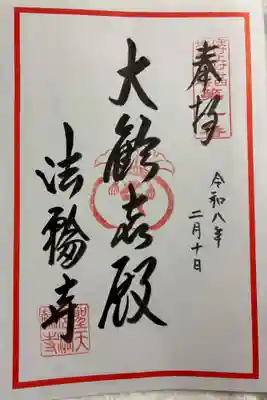 奉拝
令和八年
二月十日
大歓喜殿
法輪寺